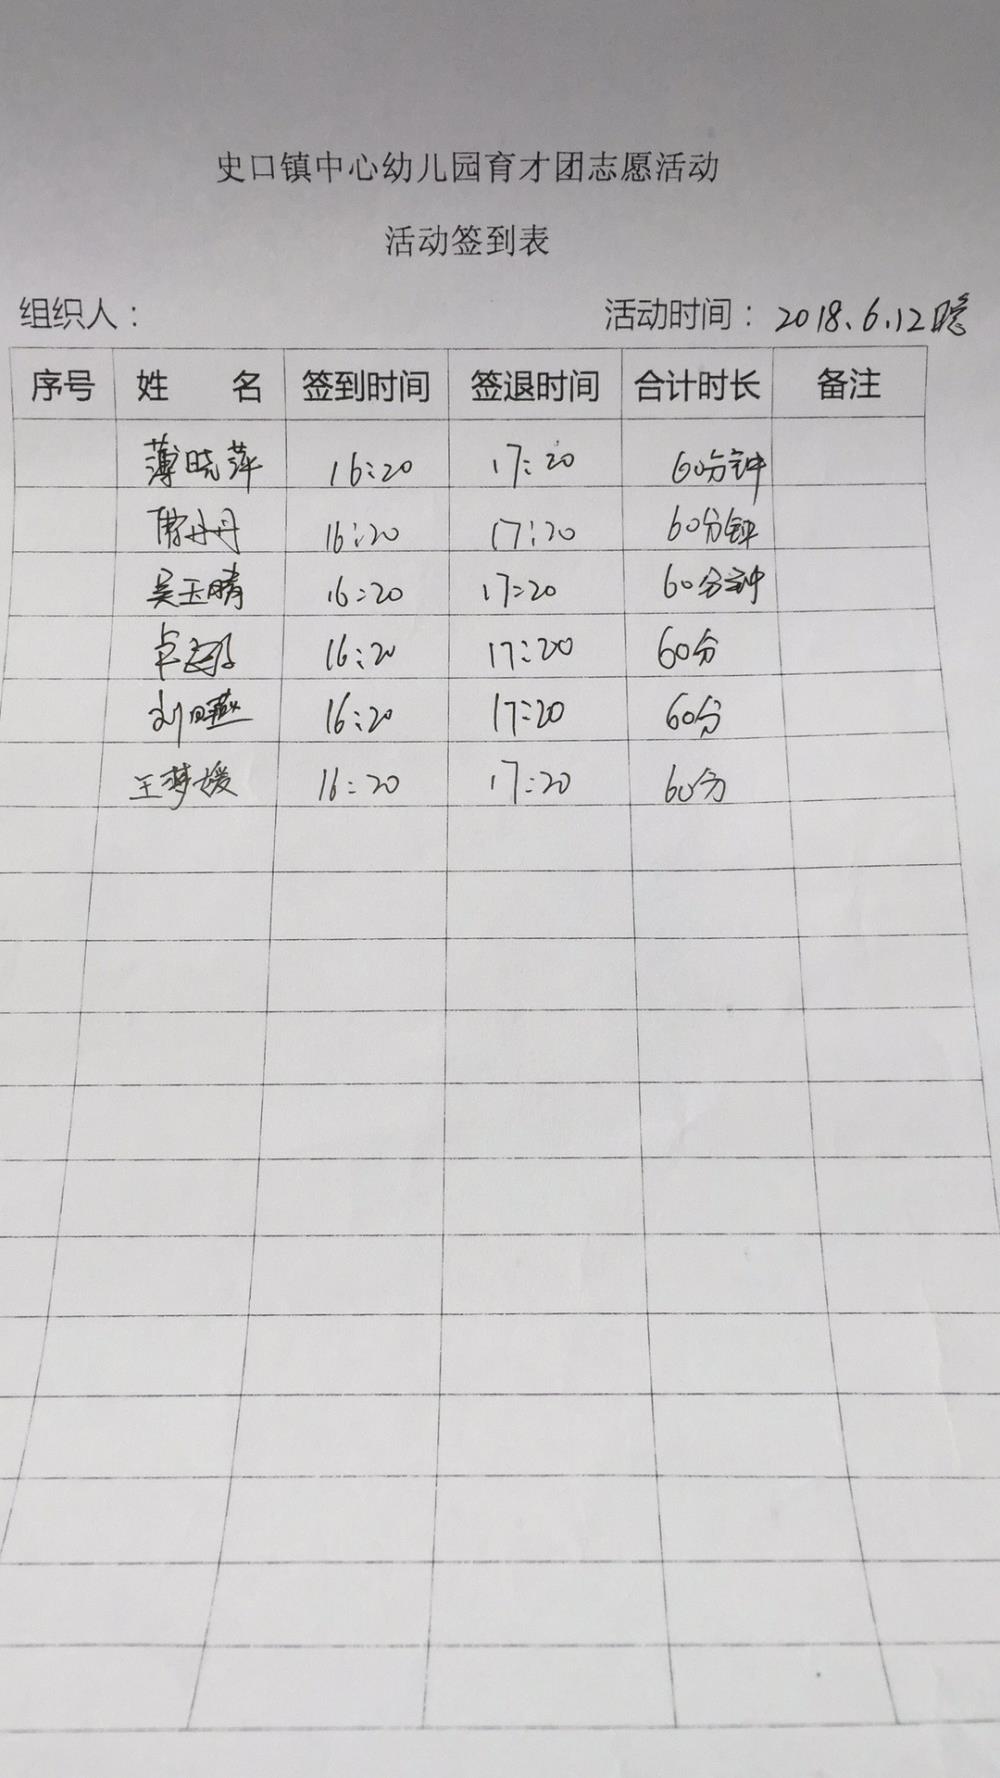 史口镇中心幼儿园育才团志愿活动
活动签到表
组织人： 活动时间：2018.6.12晚
序号 姓 名 签到时间 签退时间 合计时长 备注
薄晓萍 16:20 17:20 60分钟
丹丹 16:20 17:20 60分钟
吴玉晴 16:20 17:20 60分钟
16:20 17:20 60分
刘 燕 16:20 17:20 60分
王梦媛 16:20 17:20 60分